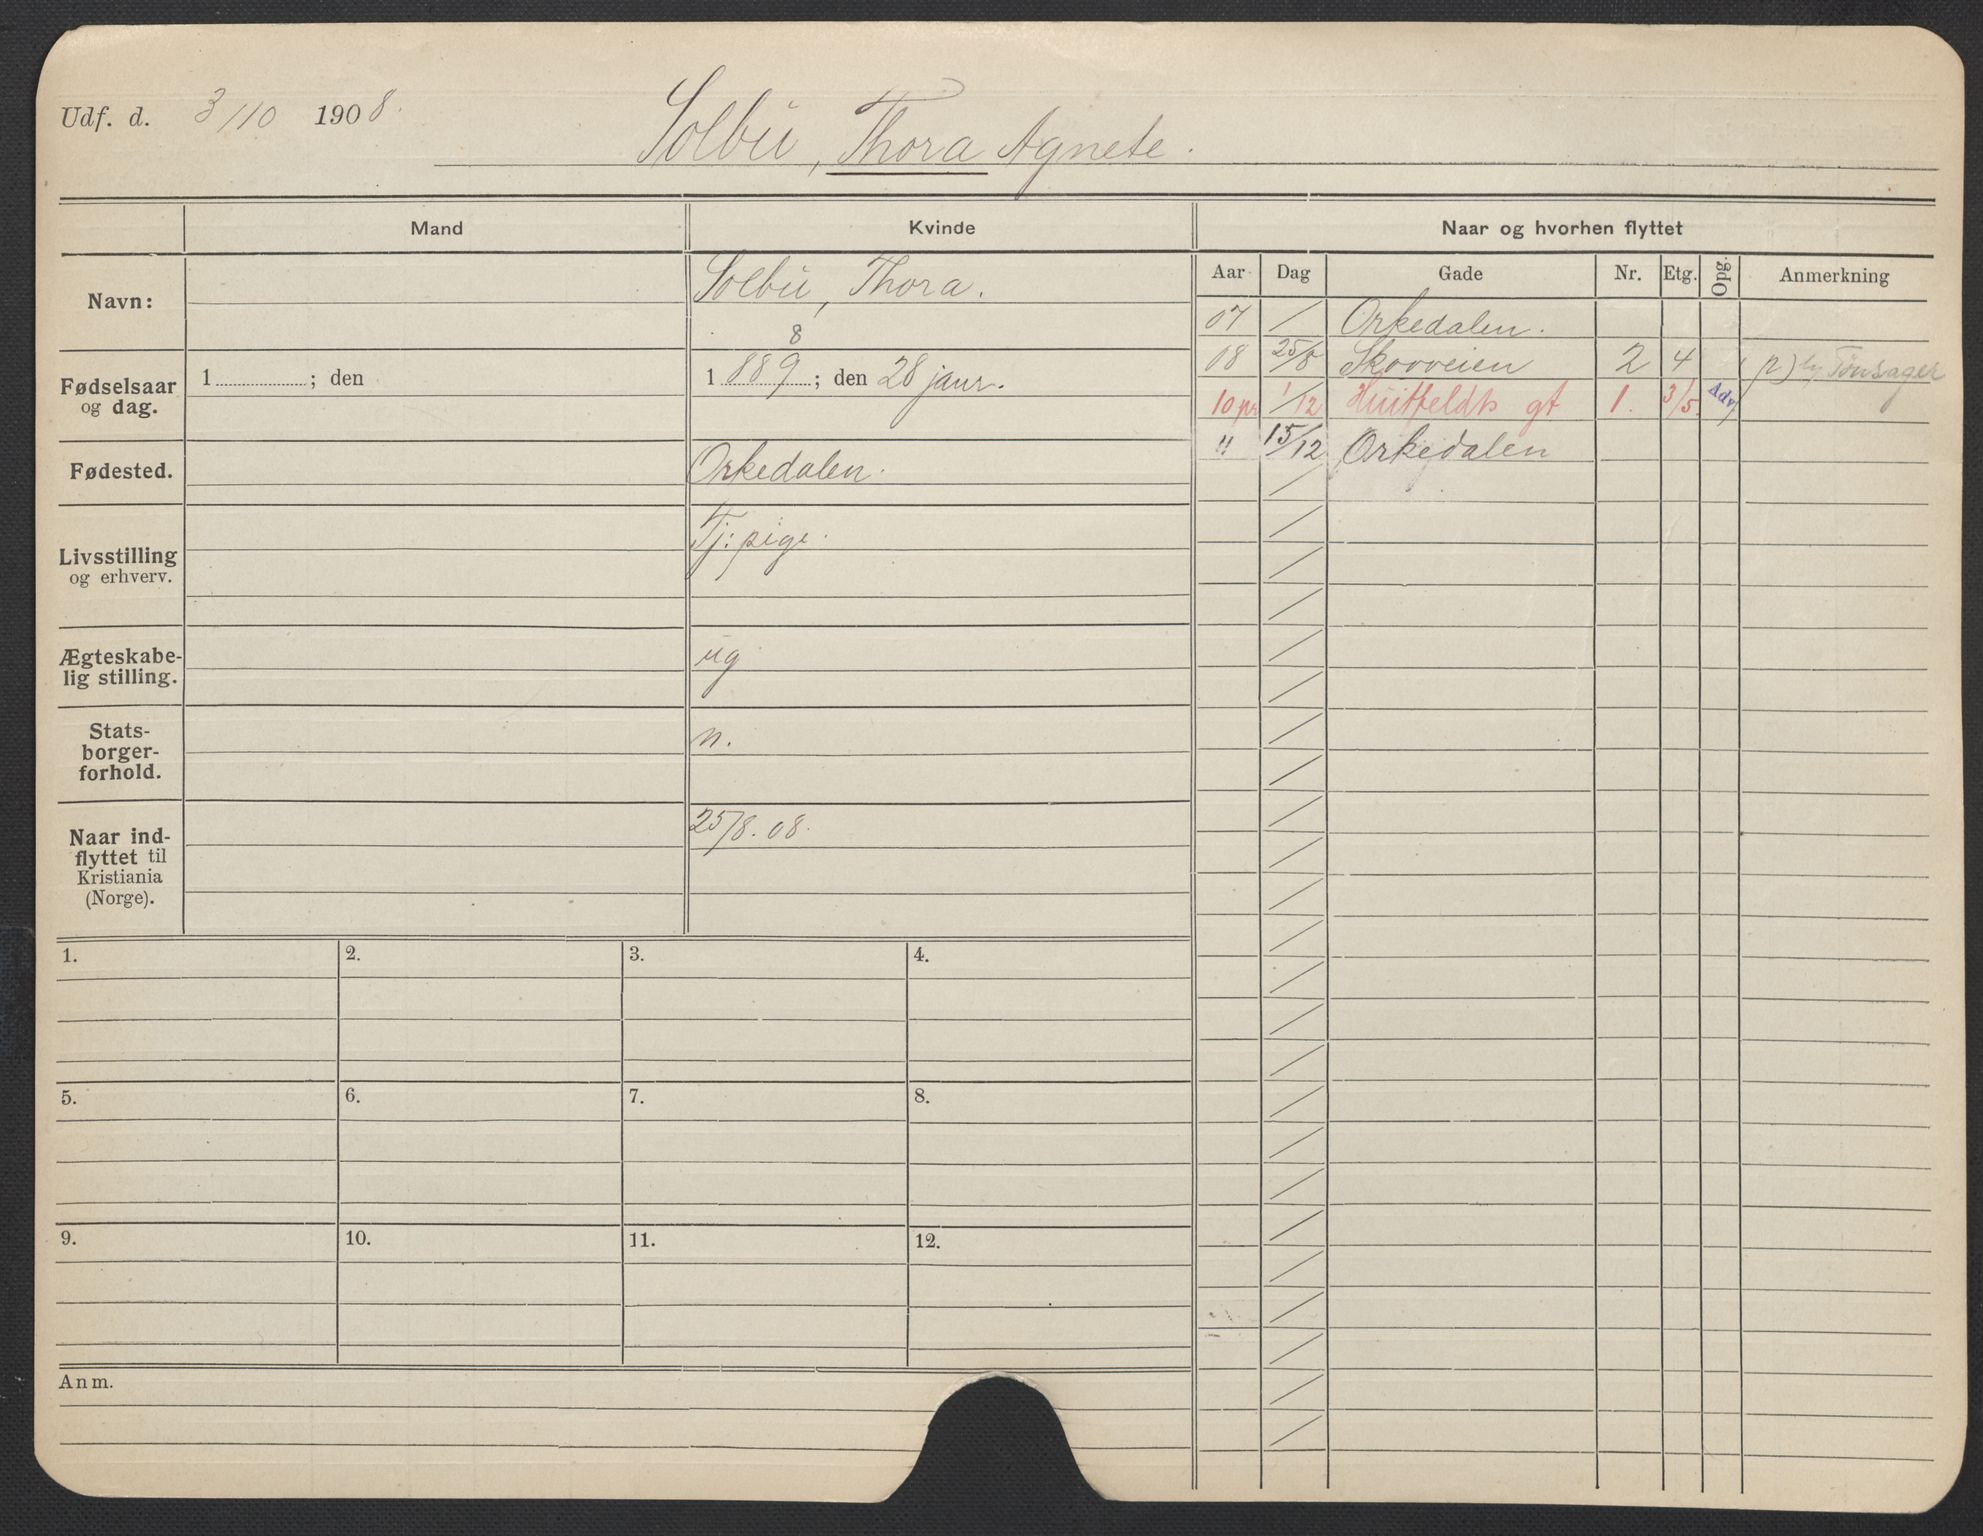 Udf. d. 3/10 1908.
Solbu, Thora Agnete.
Mand Kvinde Naar og hvorhen flyttet
Aar Dag Gade Nr. Etg. Opg. Anmerkning
Navn: Solbu, Thora.
8
Fødselsaar og dag. 1 ; den 1889 ; den 28 janr.
Fødested. Orkedalen.
Livsstilling og erhverv. Tj: pige.
Ægteskabe-
lig stilling. ug
Stats-
borger-
forhold. n.
Naar ind-
flyttet til
Kristiania
(Norge). 25/8. 08.
07 / Orkedalen.
08 25/8 Skovveien 2 4 p) Tønsager
10 pr 1/12 Huitfeldts gt 1. 3/5. Adv
11 15/12 Orkedalen
1. 2. 3. 4.
5. 6. 7. 8.
9. 10. 11. 12.
Anm.